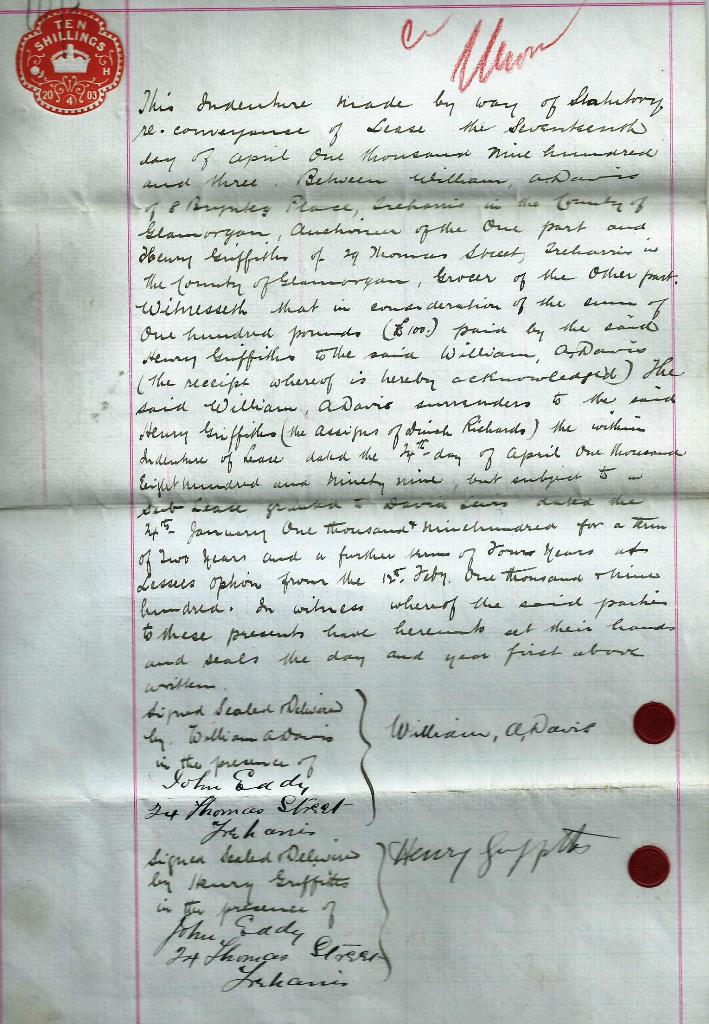 TEN
SHILLINGS
H
20 4 03
This Indenture made by way of Statutory
re-conveyance of Lease the Seventeenth
day of April One thousand Nine hundred
and three. Between William, A Davis
of 8 Place, Treharris in the County of
Glamorgan, Auctioneer of the One part and
Henry Griffiths of 29 Thomas Street, Treharris in
the County of Glamorgan, Grocer of the Other part.
Witnesseth that in consideration of the sum of
One hundred pounds (£100.) paid by the said
Henry Griffiths to the said William, A, Davis
(the receipt whereof is hereby acknowledged) The
said William, A Davis surrenders to the said
Henry Griffiths (the Assigns of Richards) the within
Indenture of Lease dated the 24th day of April One thousand
Eight hundred and Ninety nine, but subject to a
Sub Lease granted to David Lewis dated the
24th January One thousand & Ninehundred for a term
of Two Years and a further term of Years at
Lessees Option from the 1st. Feby. One thousand & nine
hundred. In witness whereof the said parties
to these presents have hereunto set their hands
and seals the day and year first above
written.
Signed Sealed & Delivered
by William A Davis
in the presence of
John Eddy
24 Thomas Street
Treharris
William, A, Davis
Signed Sealed & Delivered
by Henry Griffiths
in the presence of
John Eddy
24 Thomas Street
Treharris
Henry Griffiths